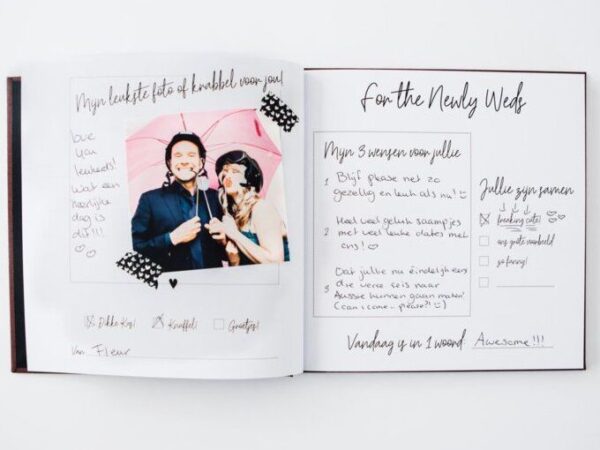 Mijn leukste foto of krabbel voor jou!
love
you
leukerds!
wat een
heerlijke
dag is
dit!!!
Dikke Kus!
Knuffel!
Groetjes!
Van Fleur
For the Newly Weds
Mijn 3 wensen voor jullie
1 Blijf please net zo
gezellig en leuk als nu!
2 Heel veel geluk saampjes
met veel leuke dates met
ons!
3 Dat jullie nu eindelijk eens
die verre reis naar
Aussie kunnen gaan maken!
(can i come - please?!)
Jullie zijn samen
freaking cute!
ons grote voorbeeld
so funny!
Vandaag is in 1 woord Awesome!!!